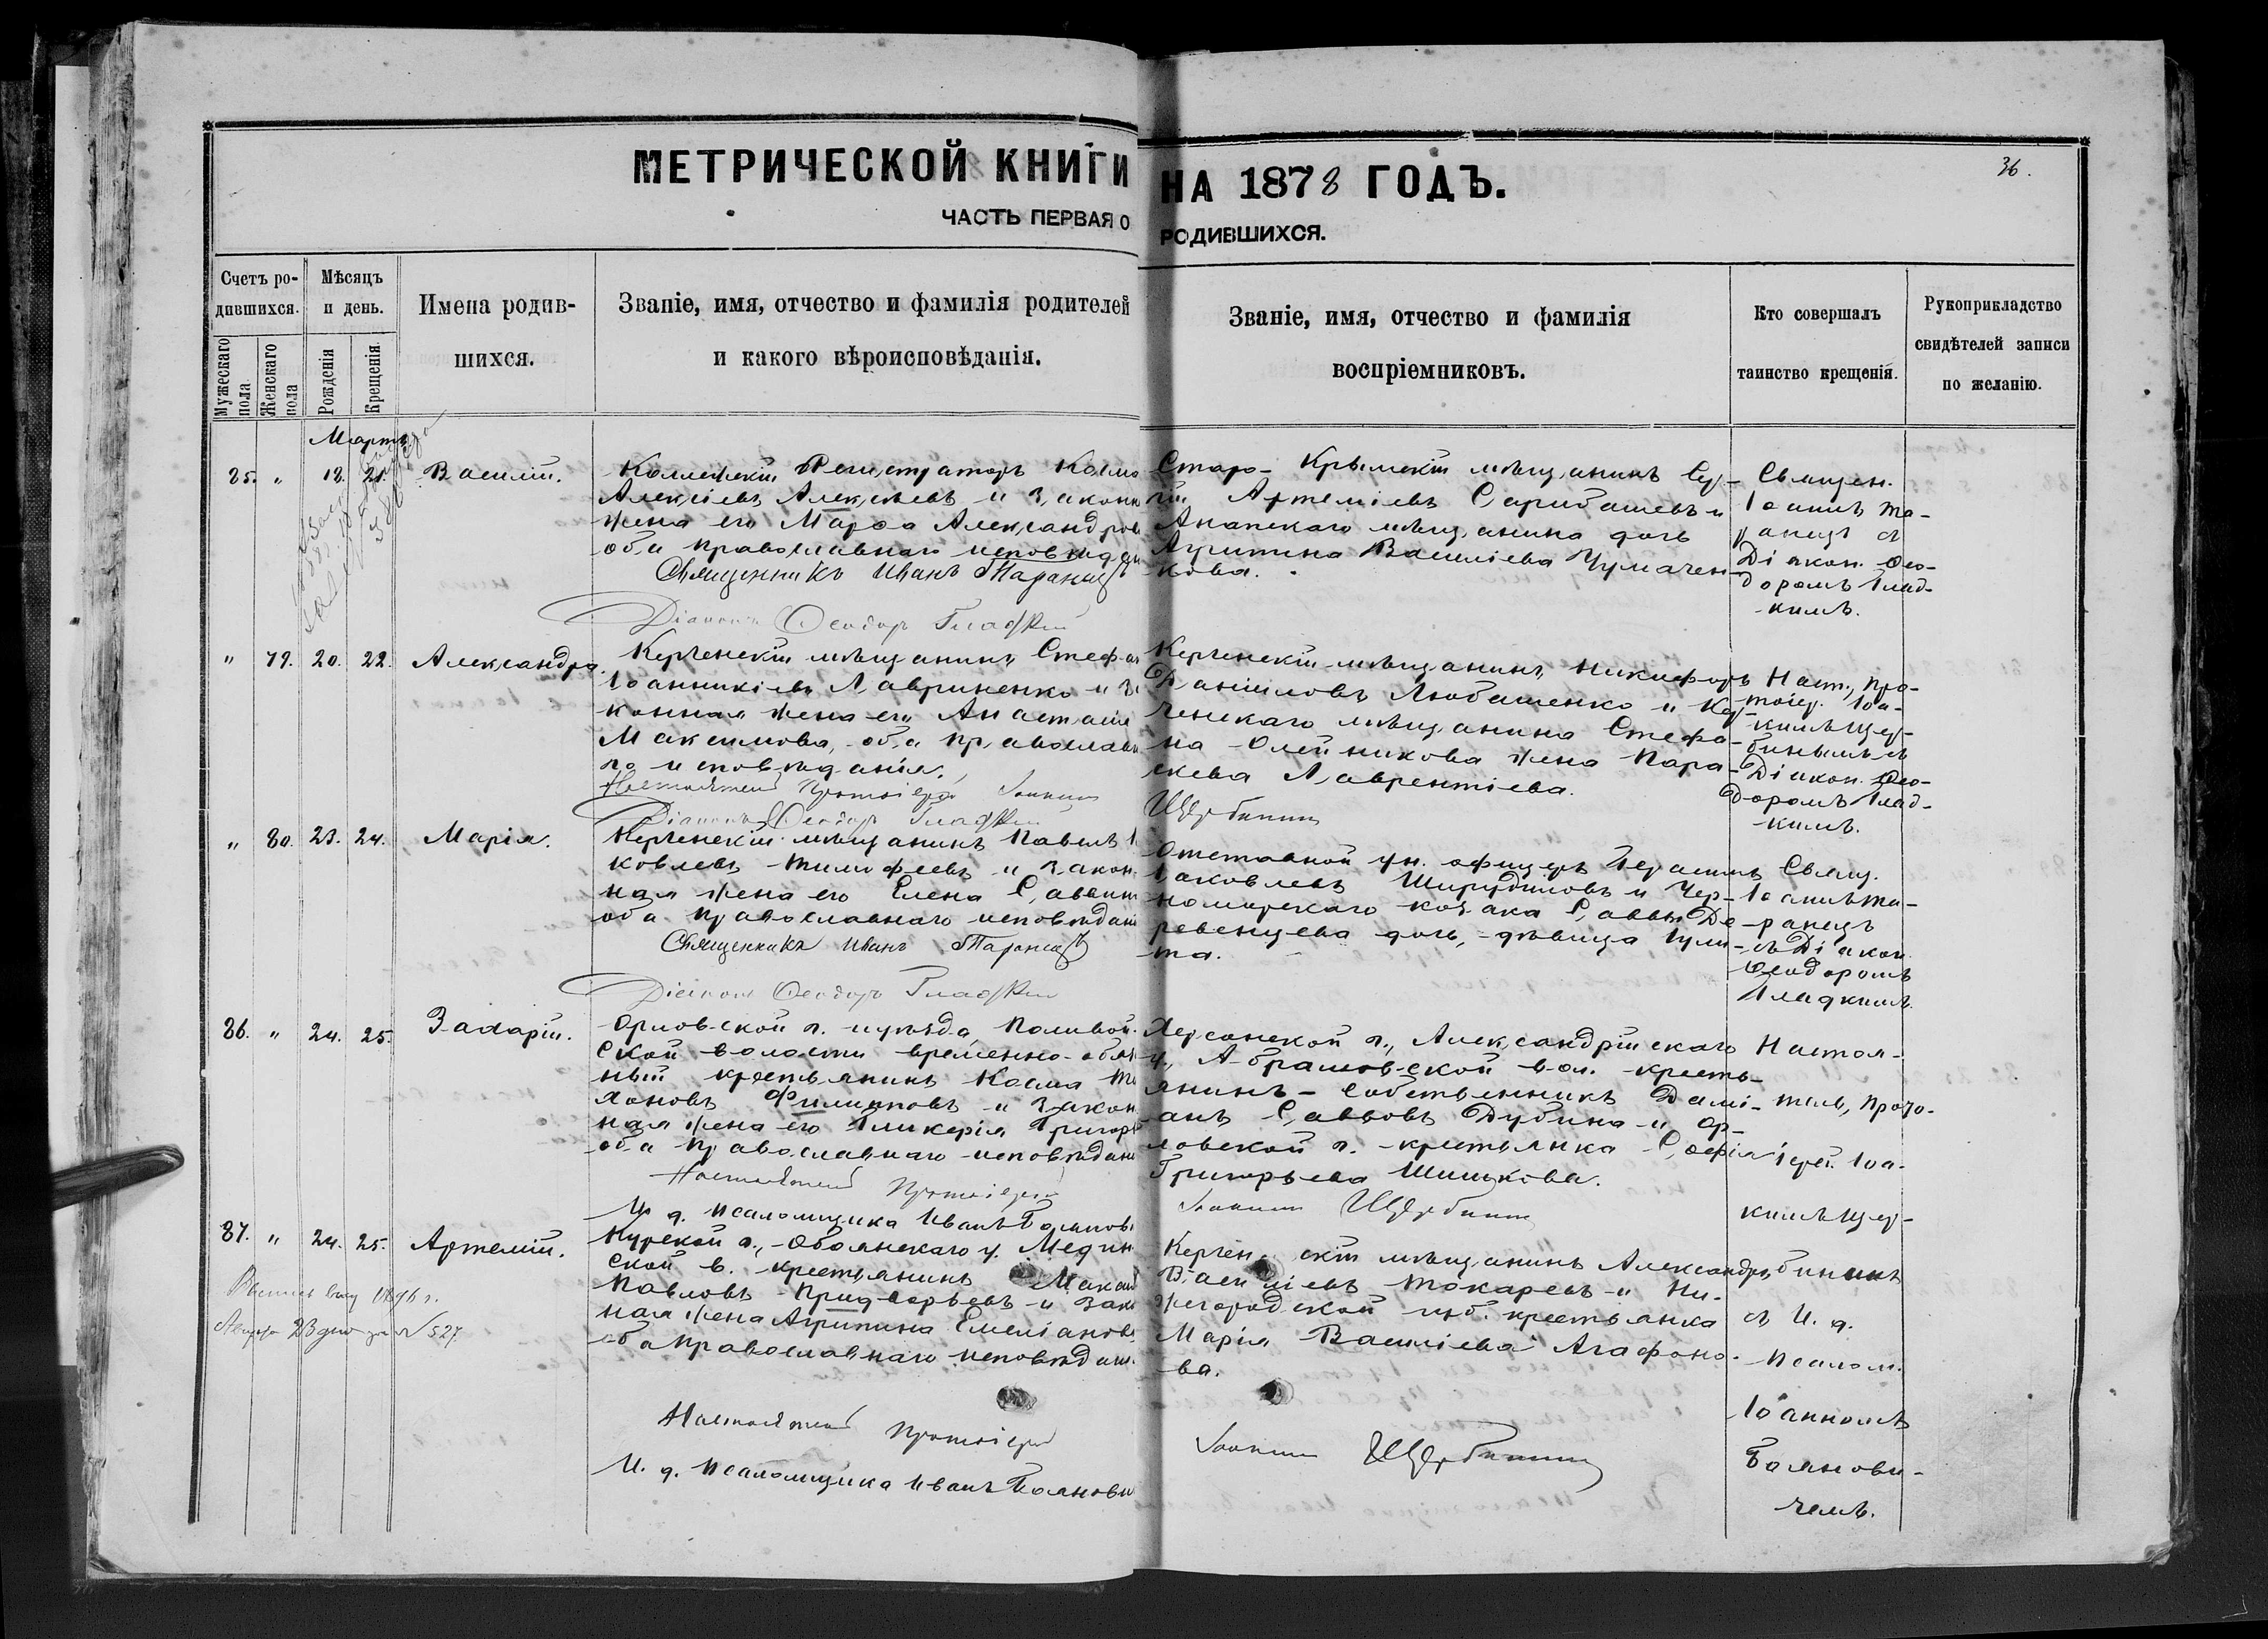 МЕТРИЧЕСКОЙ КНИГИ НА 1878 ГОДЪ.
36.
ЧАСТЬ ПЕРВАЯ О РОДИВШИХСЯ.
Счетъ ро-
дившихся.
Мужескаго пола.
Женскаго пола
Мѣсяцъ
и день.
Рожденія
Крещенія.
Имена родив-
шихся.
Званіе, имя, отчество и фамилія родителей
и какого вѣроисповѣданія.
Званіе, имя, отчество и фамилія
воспріемниковъ.
Кто совершалъ
таинство крещенія.
Рукоприкладство
свидѣтелей записи
по желанію.
Мартъ
85. " 18. 21. Василій.
Коллежскій Регистраторъ Косма
Алексіевъ Алексѣевъ и законн
жена его Марѳа Александров
оба православнаго исповѣдан
Священникъ Иванъ Таранецъ
Діаконъ Ѳеодоръ Гладкій
Старо-Крымскій мѣщанинъ Сер-
гій Артеміевъ Сарибашевъ и
Анапскаго мѣщанина дочь
Агрипина Василіева Чумачен-
кова.
Священ.
Іоаннъ Та-
ранецъ съ
Діакон. Ѳео-
доромъ Глад-
кимъ.
" 79. 20. 22. Александра.
Керченскій мѣщанинъ Стефан
Іоанникіевъ Лавриненко и за
конная жена его Анастасія
Максимова, оба православна
го исповѣданія.
Настоятель Протоіерей Іоакимъ
Щербининъ
Діаконъ Ѳеодоръ Гладкій
Керченскій мѣщанинъ Никифоръ
Даніиловъ Любашенко и Кер-
ченскаго мѣщанина Стефа-
на Олейникова жена Пара-
скева Лаврентіева.
Наст., про-
тоіер. Іоа-
кимъ Щер-
бининымъ съ
Діакон. Ѳео-
доромъ Глад-
кимъ.
" 80. 23. 24. Марія.
Керченскій мѣщанинъ Павелъ І
ковлевъ Тимофеевъ и закон-
ная жена его Елена Саввин
оба православнаго исповѣдані
Священникъ Иванъ Таранецъ
Діаконъ Ѳеодоръ Гладкій
Отставной ун. офицеръ Герасимъ
Іаковлевъ и Чер-
номорскаго козака Саввы Де-
ревенцева дочь, дѣвица Іули-
та.
Свящ.
Іоаннъ Та-
ранецъ
съ Діакон.
Ѳеодоромъ
Гладкимъ.
86. " 24. 25. Захарій.
Орловской г. и уѣзда,
ской волости временно-обяз
ный крестьянинъ Косма Ти
хоновъ Филипповъ и закон
ная жена его Гликерія Григорь
оба православнаго исповѣдані
Настоятель Протоіерей
Іоакимъ Щербининъ
И. д. псаломщика Иванъ Боянови
Херсонской г., Александрійскаго
у., Абрамовской вол. кресть-
янинъ-собственникъ Дамі-
анъ Саввовъ Дубина и Ор-
ловской г. крестьянка Софія
Григорьева Шишкова.
87. " 24. 25. Артемій.
Курской г., Обоянскаго у. Медвин
ской в. крестьянинъ Макар
Павловъ Придворьевъ и зак
ная жена Агрипина Емеліанова
оба православнаго исповѣдані
Настоятель Протоіерей
Іоакимъ Щербининъ
И. д. псаломщика Иванъ Боянови
Керченскій мѣщанинъ Александръ
Василіевъ Токаревъ и Ни-
жегородской губ. крестьянка
Марія Василіева Агафоно-
ва.
Настоя-
тель, прото-
іерей Іоа-
кимъ Щер-
бининъ
съ И. д.
псалом.
Іоанномъ
Боянови-
чемъ.
1896 г.
23 дня за № 527